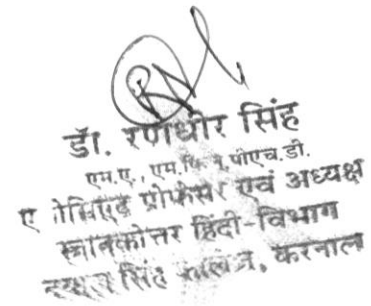 डॉ. रणधीर सिंह
एम.ए., एम.फिल, पीएच.डी.
एसोसिएट प्रोफेसर एवं अध्यक्ष
स्नातकोत्तर हिंदी-विभाग
सिंह करनाल